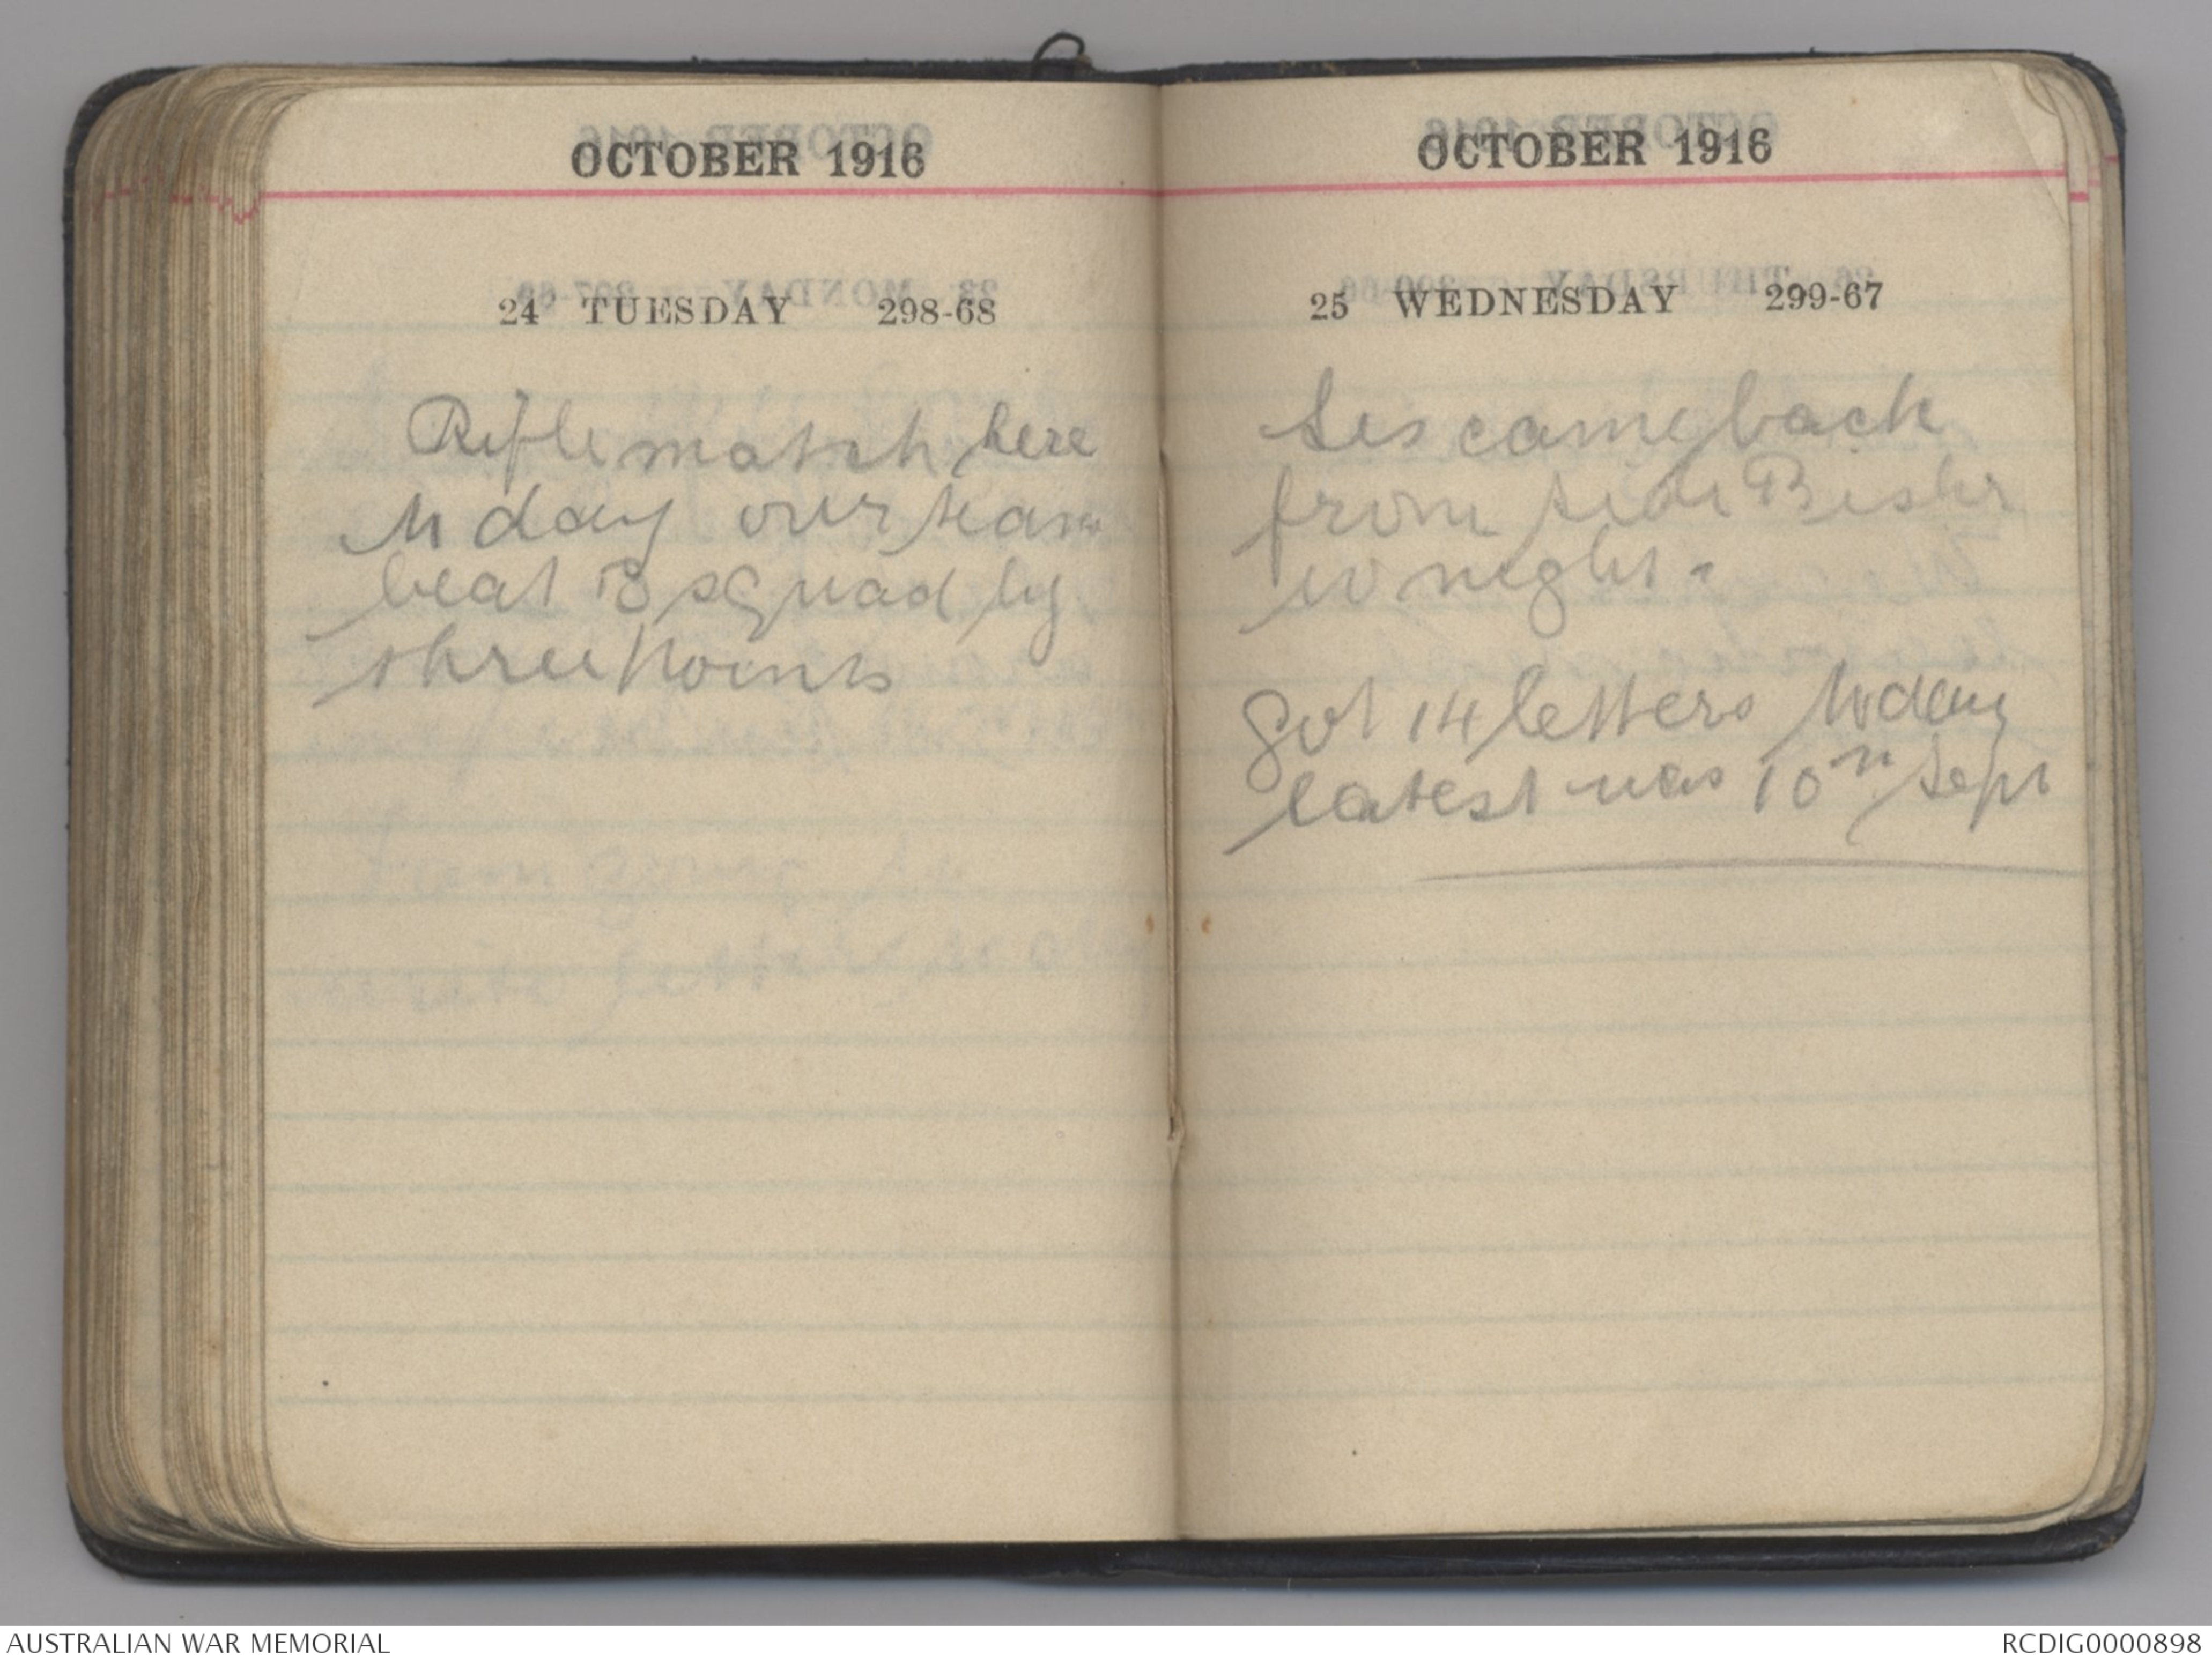 OCTOBER 1916
24 TUESDAY 298-68
Rifle match here
to day our team
beat B squad by
three points
OCTOBER 1916
25 WEDNESDAY 299-67
came back
from Sidi Bishr
to night.
Got 14 letters today
latest was 10th Sept
AUSTRALIAN WAR MEMORIAL
RCDIG0000898